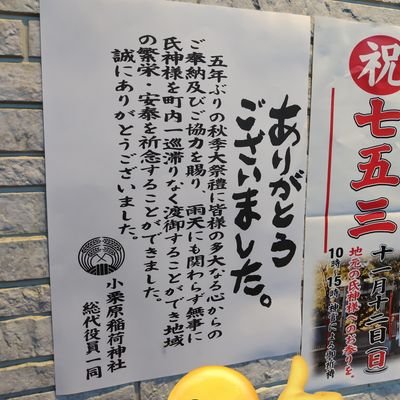 ありがとう
ございました。
五年ぶりの秋季大祭禮に皆様の多大なる心からの
ご奉納及びご協力を賜り、雨天にも関わらず無事に
氏神様を町内一巡滞りなく渡御することができ地域
の繁栄・安泰を祈念することができました。
誠にありがとうございました。
小栗原稲荷神社
総代役員一同
祝
七五三
十一月十二日(日)
地元の氏神様へのお参りを。